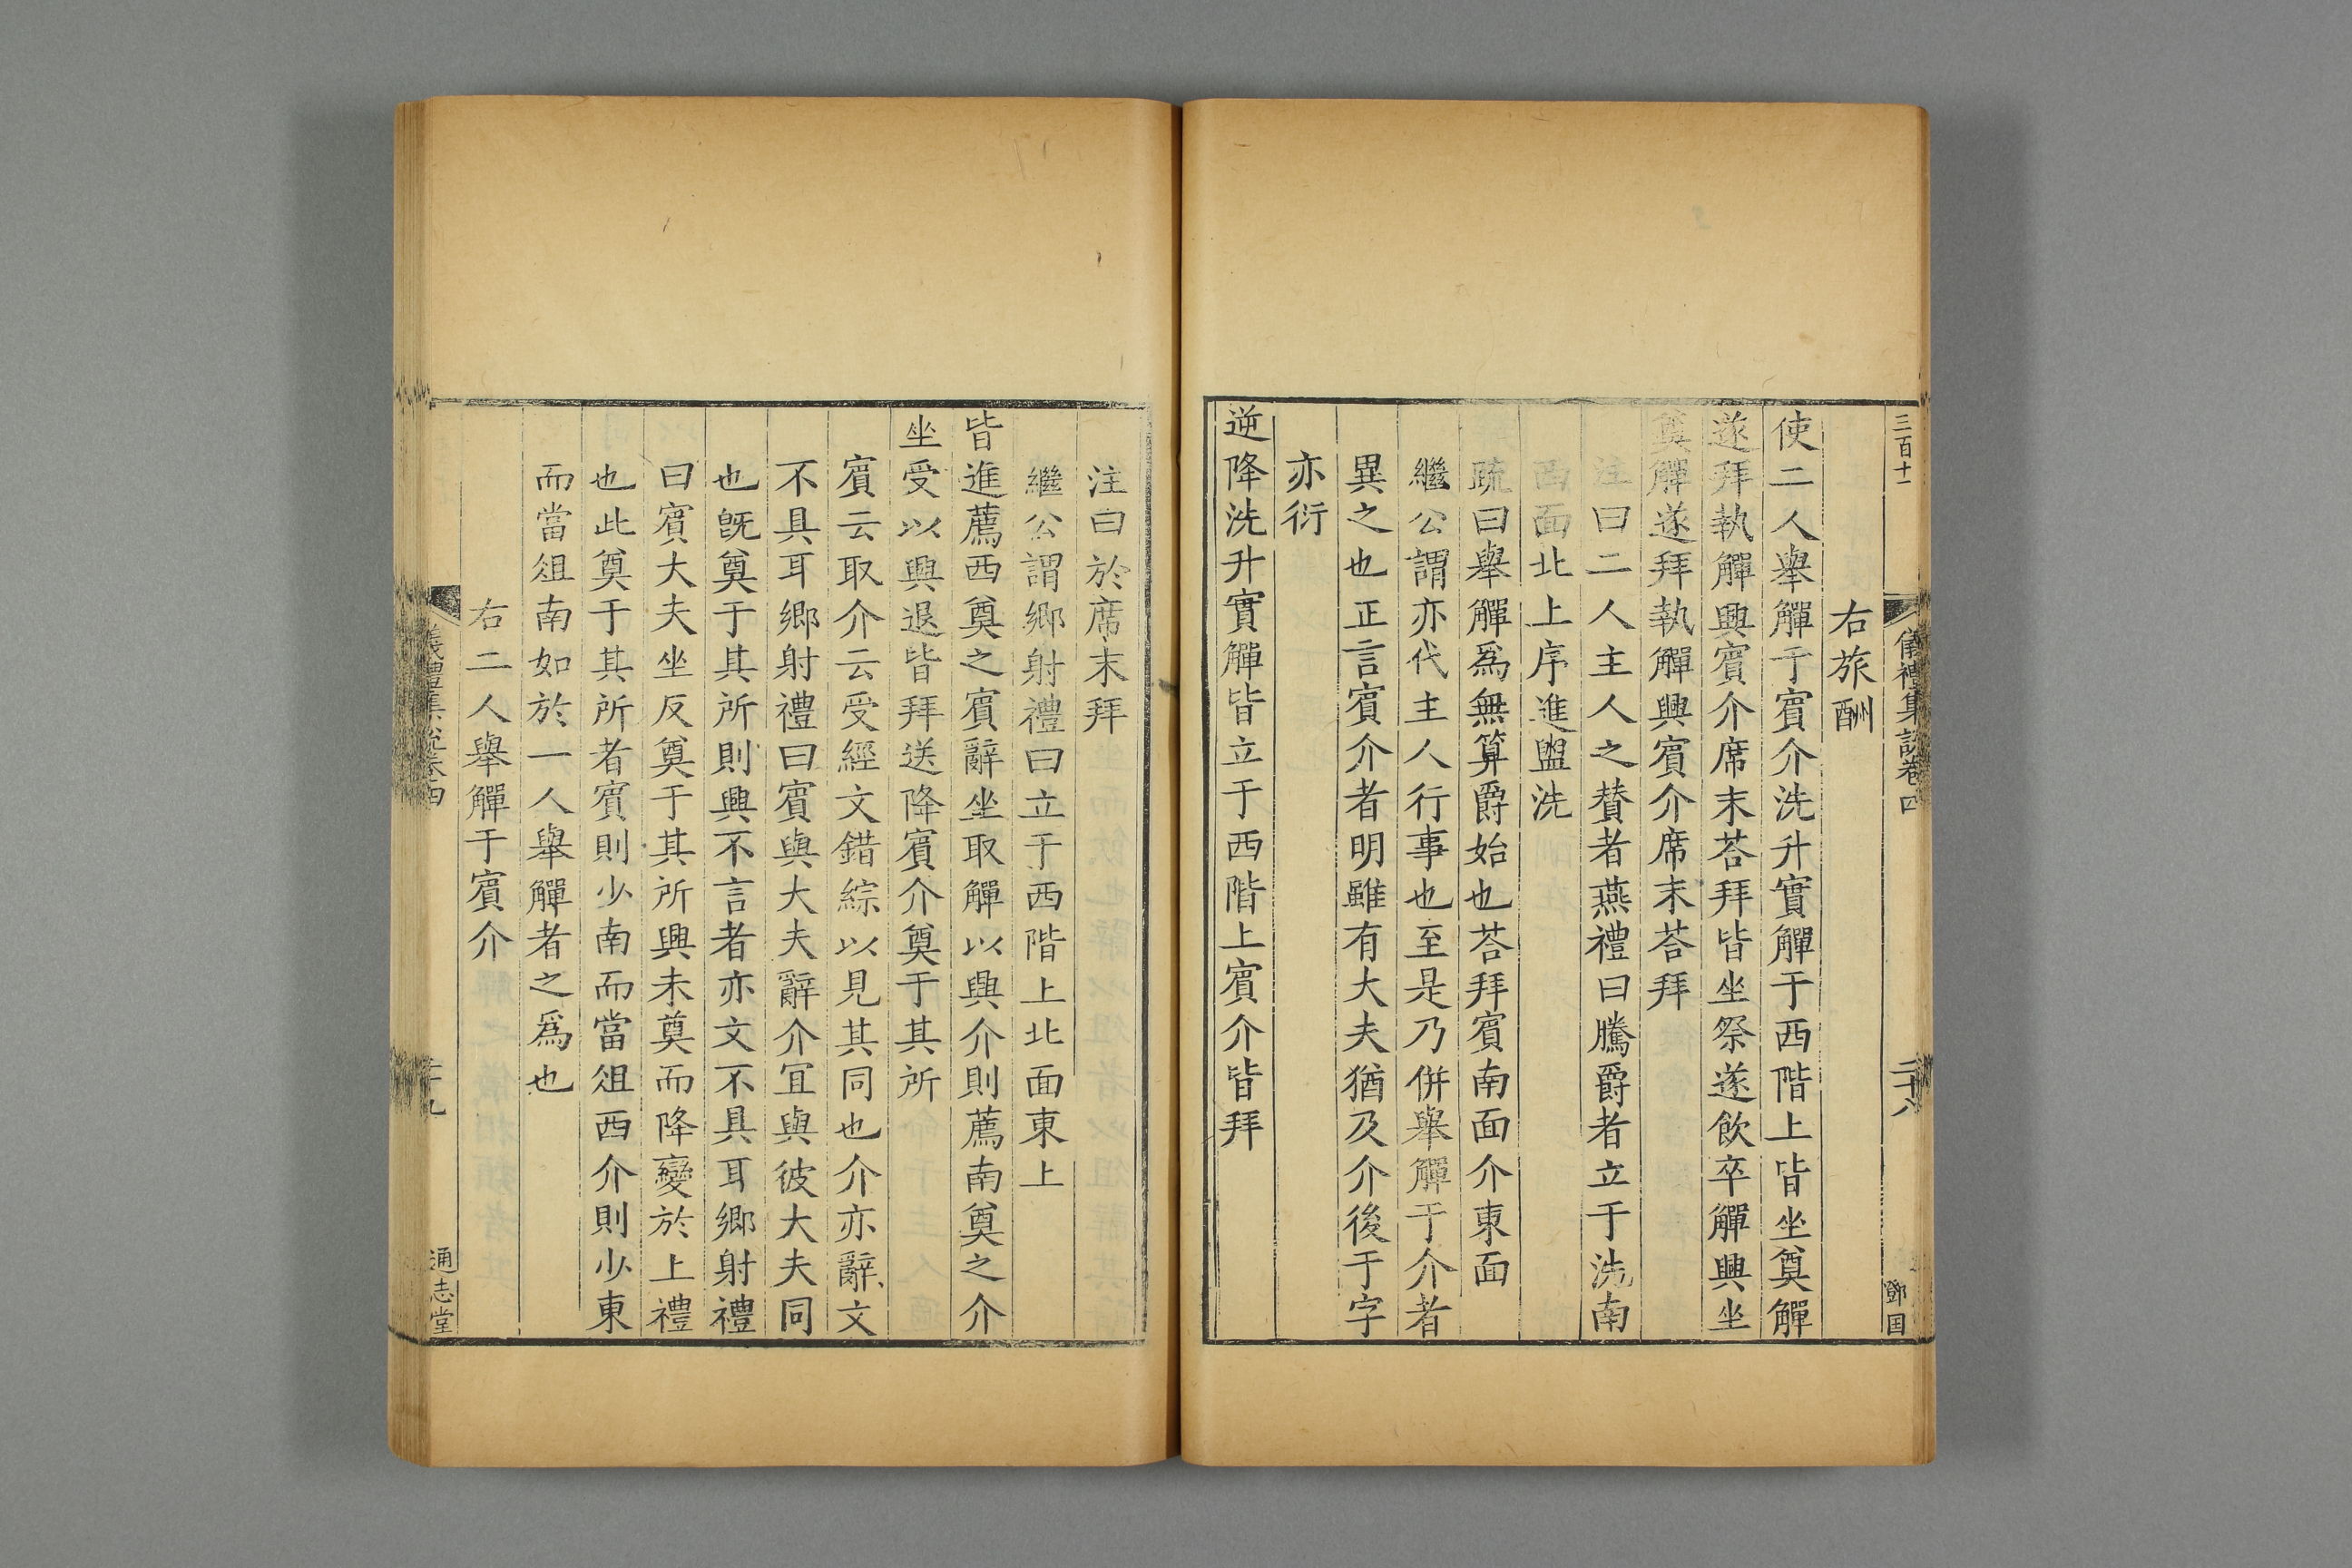 三百十一
儀禮集說卷四
二十八
鄧国
右旅酬
使二人舉觶于賓介洗升實觶于西階上皆坐奠觶
遂拜執觶興賓介席末荅拜皆坐祭遂飲卒觶興坐
奠觶遂拜執觶興賓介席末荅拜
注曰二人主人之贊者燕禮曰騰爵者立于洗南
西面北上序進盥洗
疏曰舉觶爲無算爵始也荅拜賓南面介東面
繼公謂亦代主人行事也至是乃併舉觶于介者
異之也正言賓介者明雖有大夫猶及介後于字
亦衍
逆降洗升實觶皆立于西階上賓介皆拜
注曰於席末拜
繼公謂鄉射禮曰立于西階上北面東上
皆進薦西奠之賓辭坐取觶以興介則薦南奠之介
坐受以興退皆拜送降賓介奠于其所
賓云取介云受經文錯綜以見其同也介亦辭文
不具耳鄉射禮曰賓與大夫辭介宜與彼大夫同
也旣奠于其所則興不言者亦文不具耳鄉射禮
曰賓大夫坐反奠于其所興未奠而降變於上禮
也此奠于其所者賓則少南而當俎西介則少東
而當俎南如於一人舉觶者之爲也
右二人舉觶于賓介
儀禮集說卷四
二十九
通志堂